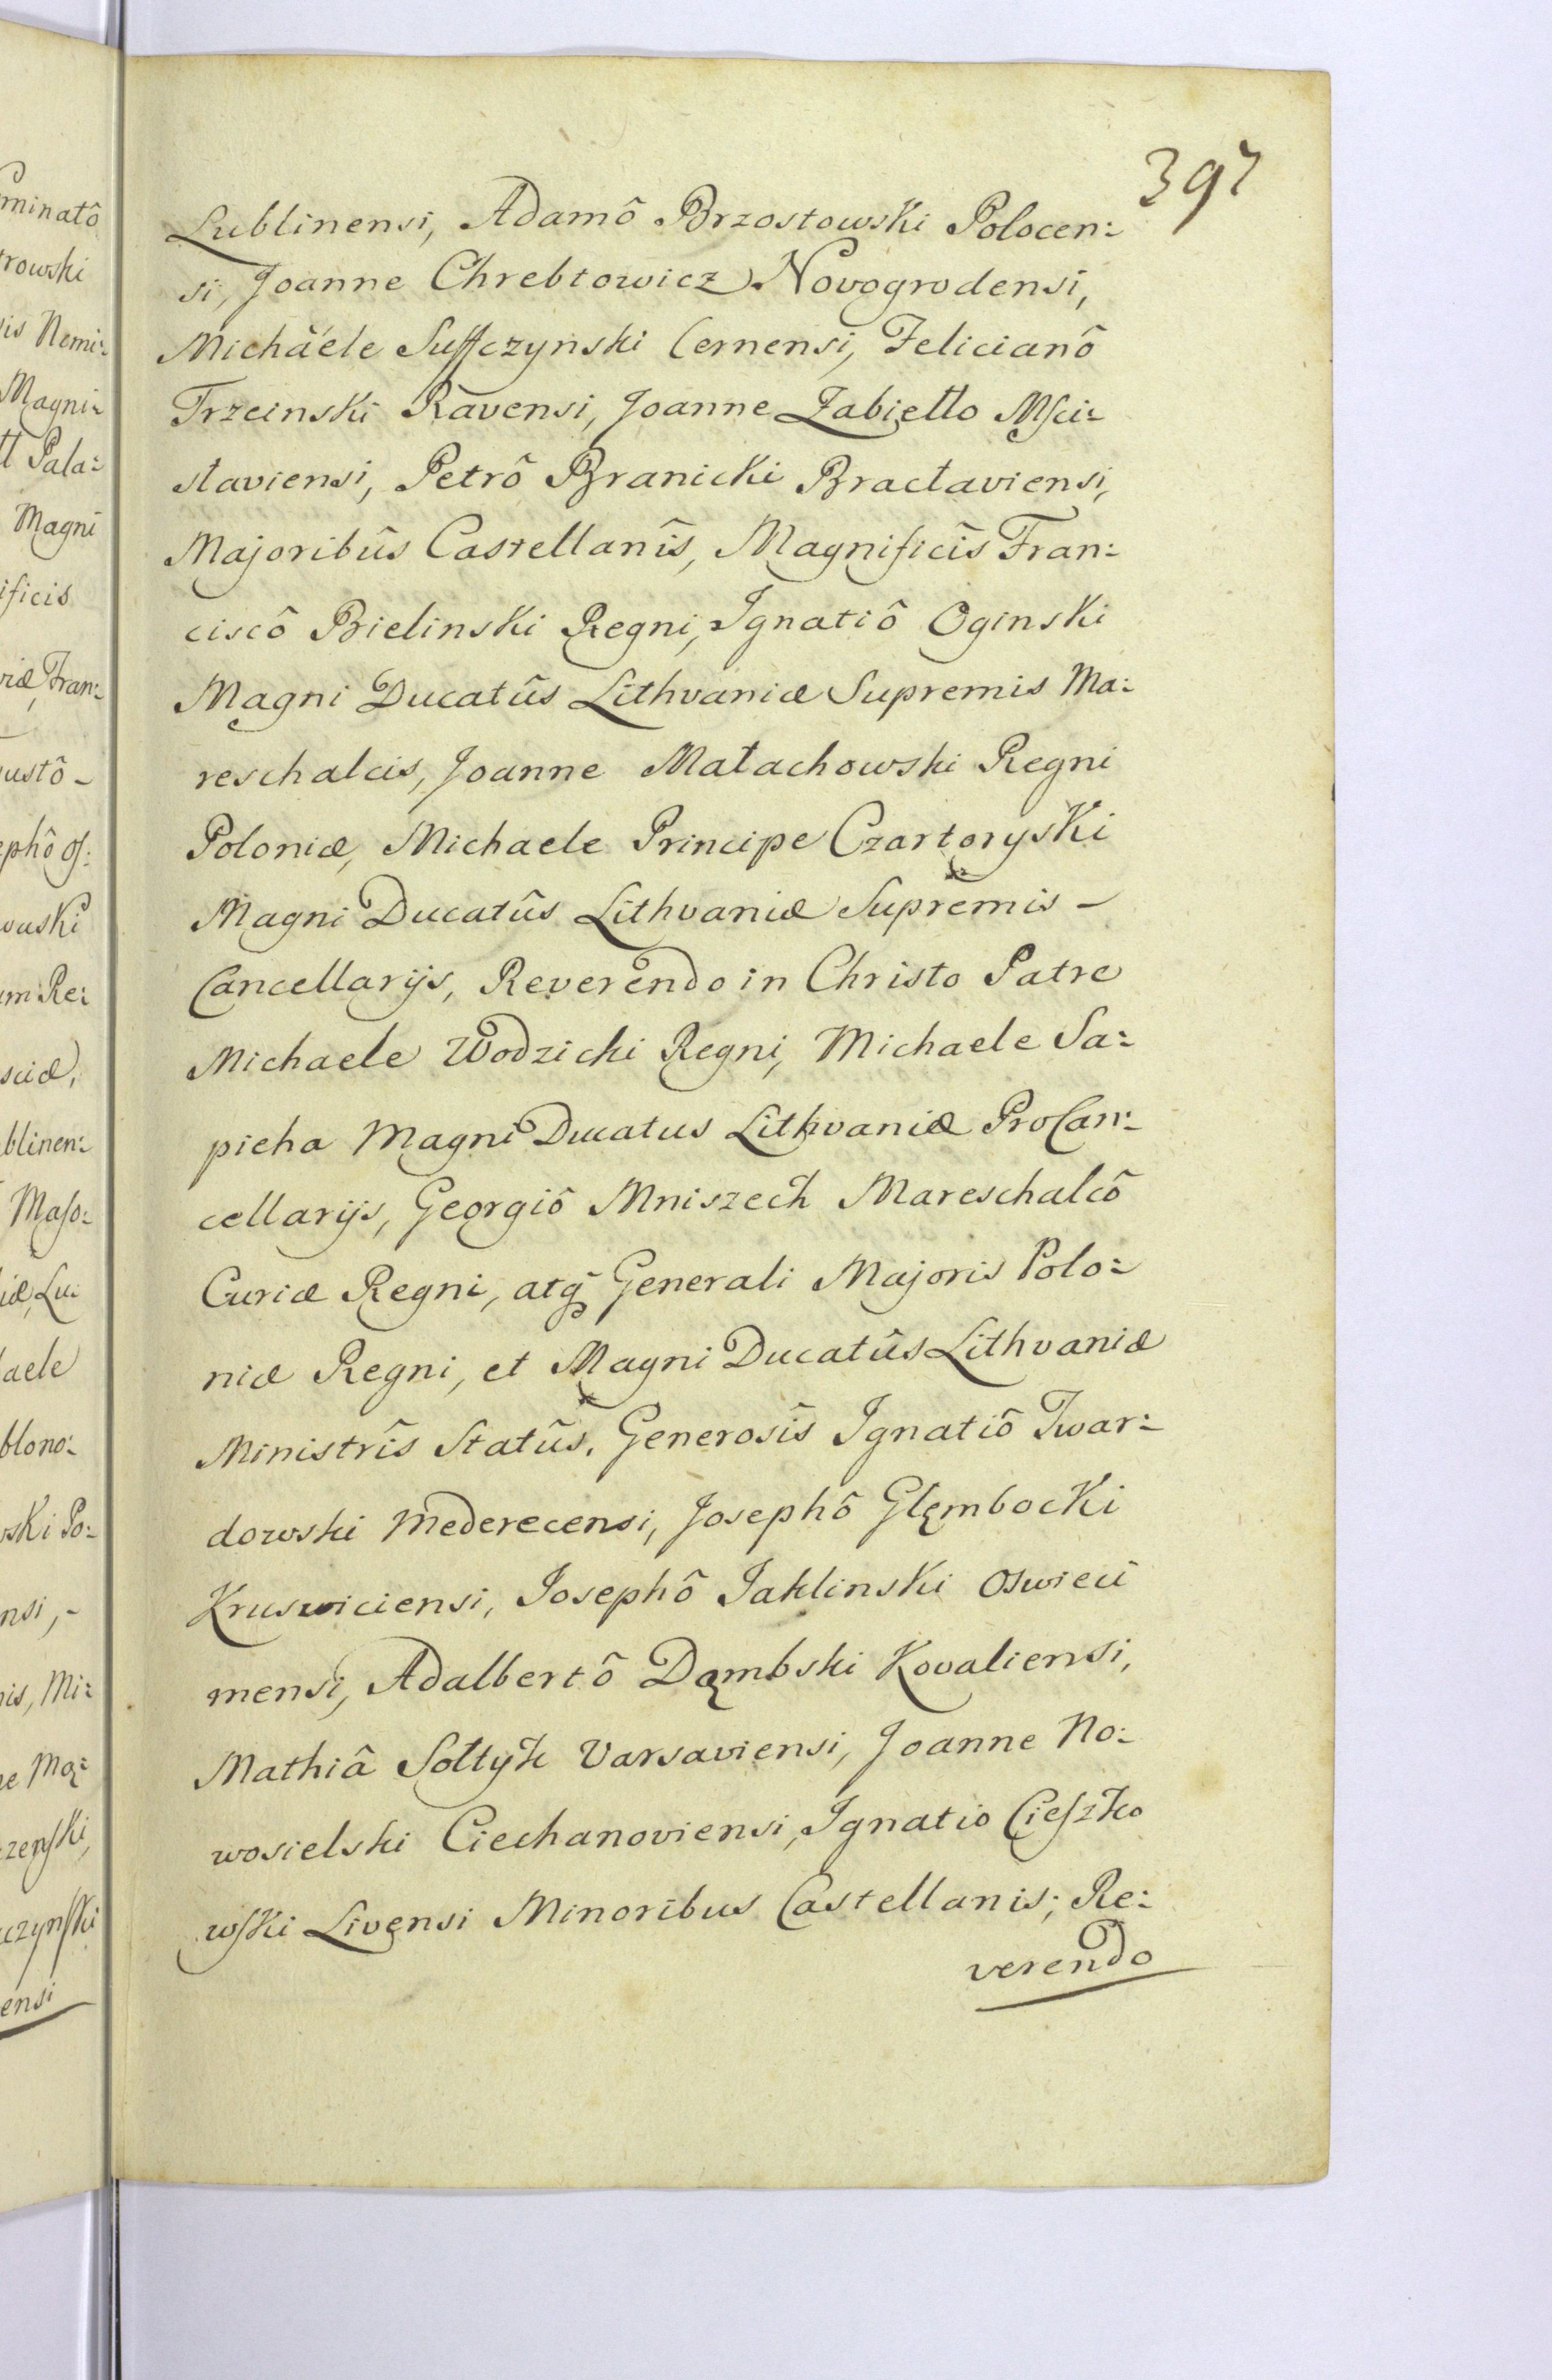 397
Lublinensi, Adamô Brzostowski Polocen:
si, Joanne Chrebtowicz Novogrodensi,
Michaële Suffczynski Cernensi, Felicianô
Trzcinski Ravensi, Joanne Zabiełło Msci:
slaviensi, Petrô Branicki Braclaviensi,
Majoribûs Castellanîs, Magnificîs Fran:
ciscô Bielinski Regni, Ignatiô Oginski
Magni Ducatûs Lithvaniæ Supremis Ma:
reschalcis, Joanne Małachowski Regni
Poloniæ, Michaele Principe Czartoryski
Magni Ducatûs Lithvaniæ Supremis -
Cancellarijs, Reverendo in Christo Patre
Michaele Wodzicki Regni, Michaele Sa:
pieha Magni Ducatus Lithvaniæ ProCan:
cellarijs, Georgiô Mniszech Mareschalcô
Curiæ Regni, atq̃ Generali Majoris Polo:
niæ Regni, et Magni Ducatûs Lithvaniæ
Ministrîs Statûs. Generosîs Ignatiô Twar:
dowski Mederecensi, Josephô Głęmbocki
Kruswiciensi, Josephô Jaklinski Oswieci
mensi, Adalbertô Dąmbski Kovaliensi,
Mathiâ Sołtyk Varsaviensi, Joanne No:
wosielski Ciechanoviensi, Ignatio Cieszko
wski Livensi Minoribus Castellanis; Re:
verendo
minatô
rowski
is Nemi:
Magni:
tt Pala:
Magni
ificis
riæ Fran:
ustô -
ephô Os:
wuski
um Re:
sciæ,
blinen:
Maso:
iæ, Lu:
aele
blono:
wski Po:
nsi, -
nis, Mi:
ne Mą:
zenski,
czynski
ensi